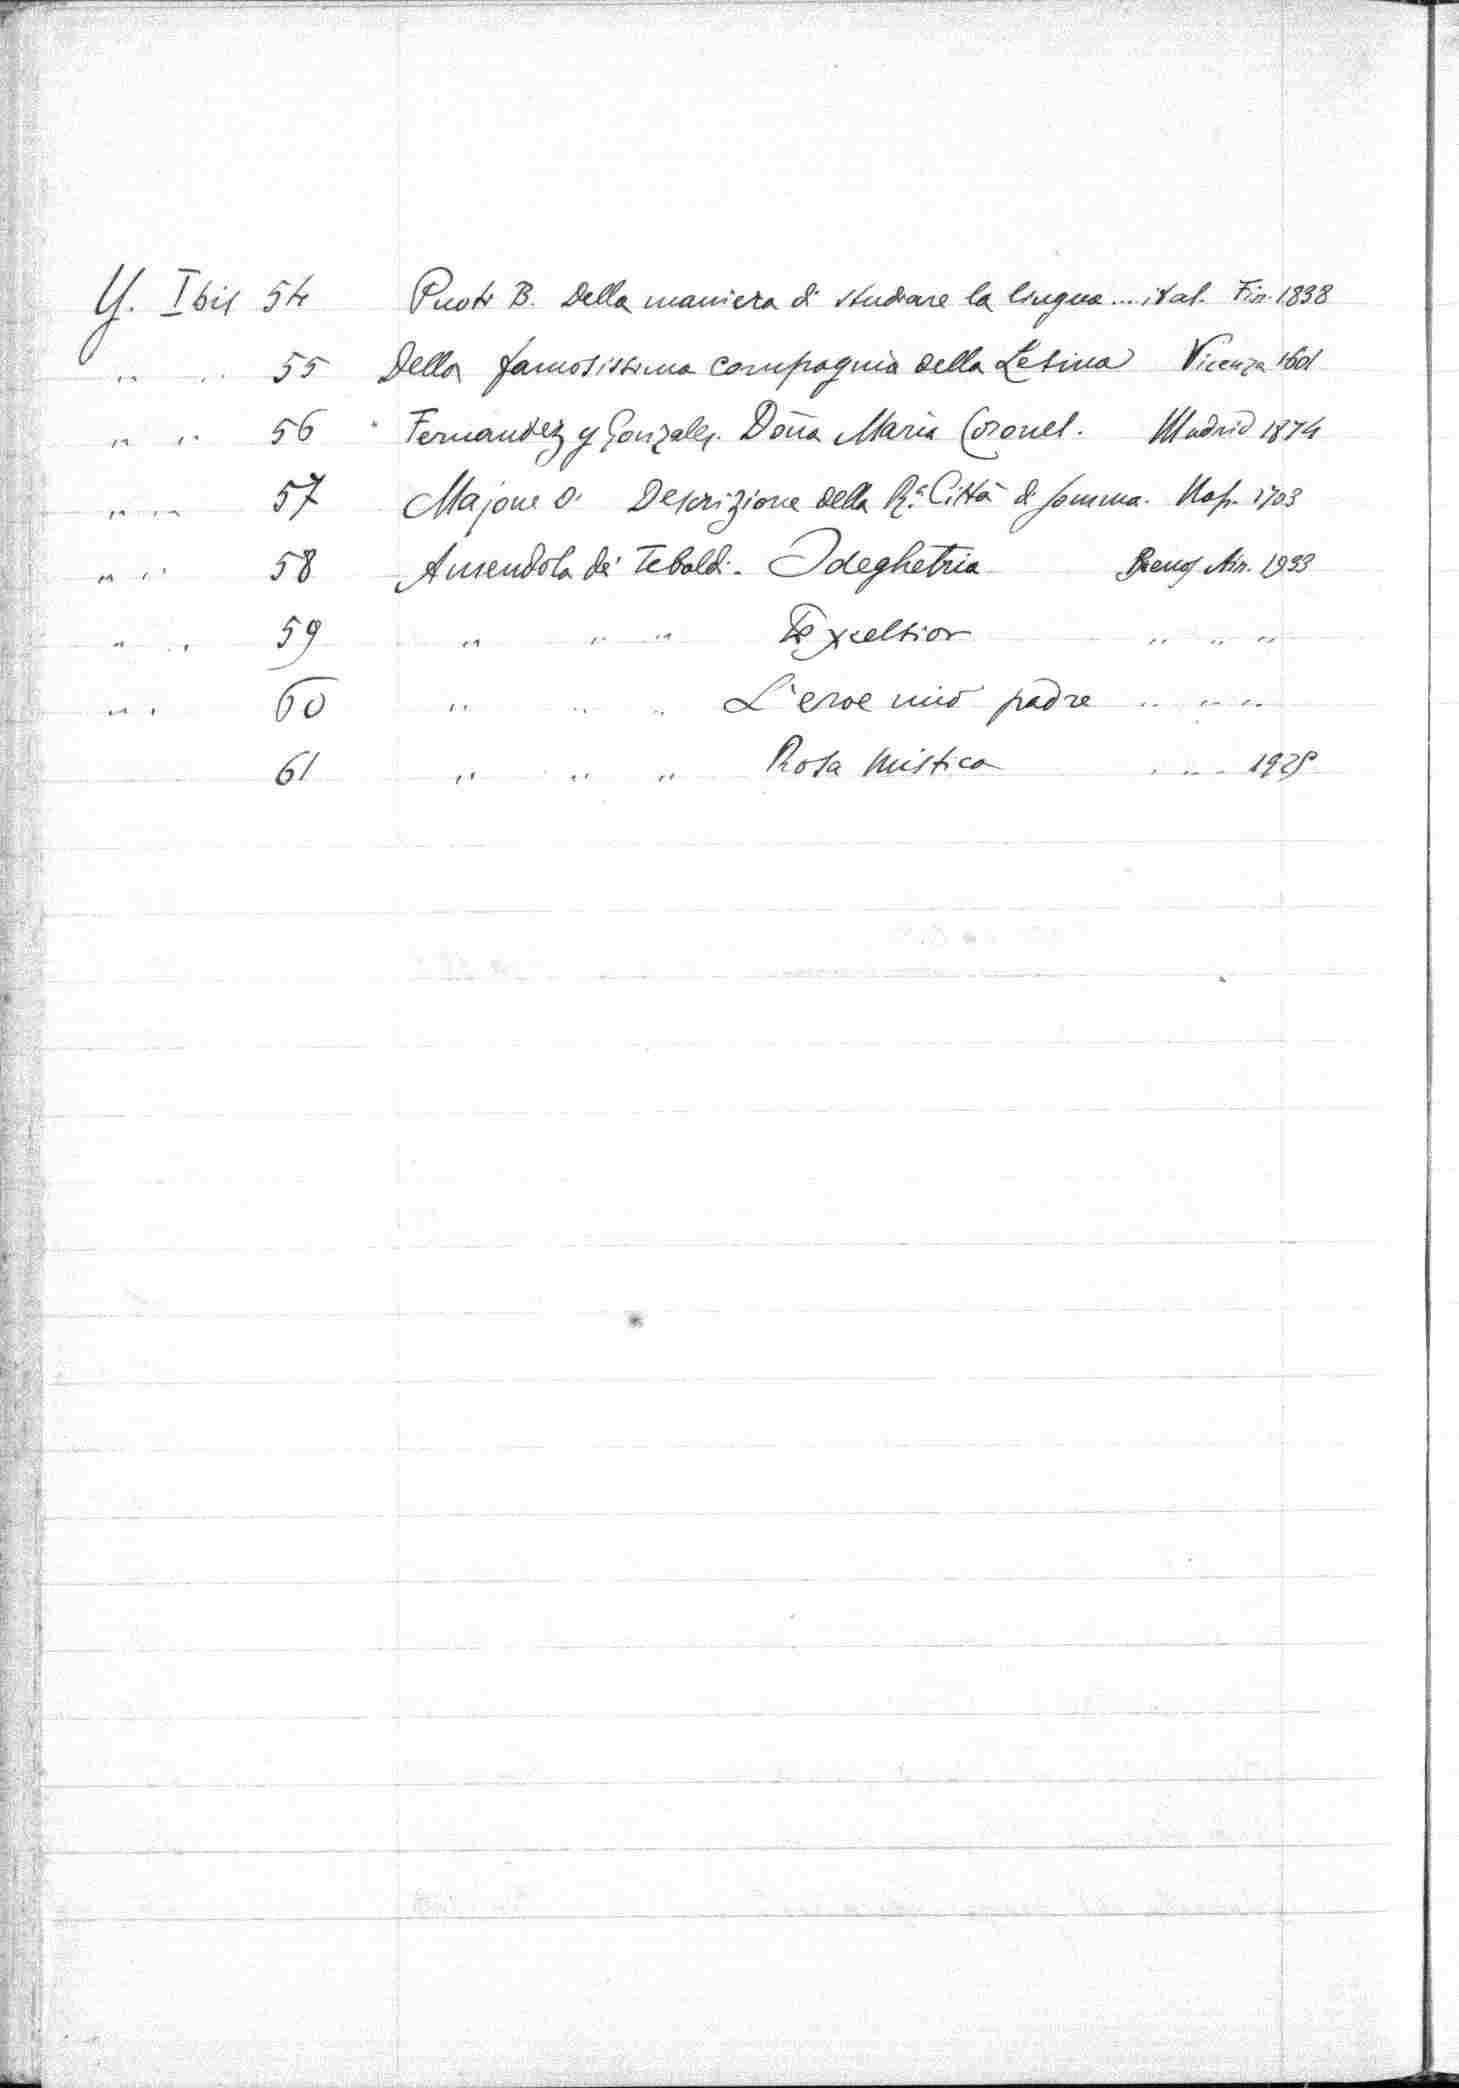 Y. I bis 54 Puoti B. Della maniera di studiare la lingua... ital. Fir. 1838
" " 55 Della famosissima compagnia della Lesina Vicenza 1601
" " 56 Fernandez y Gonzalez. Doña Maria Coronel. Madrid 1874
" " 57 Majone D. Descrizione della R.a Città di Somma. Nap. 1703
" " 58 Amendola de' Tebaldi. Odeghetria Buenos Air. 1933
" " 59 " " " Excelsior " " "
" " 60 " " " L'eroe mio padre " " "
61 " " " Rosa Mistica " " "